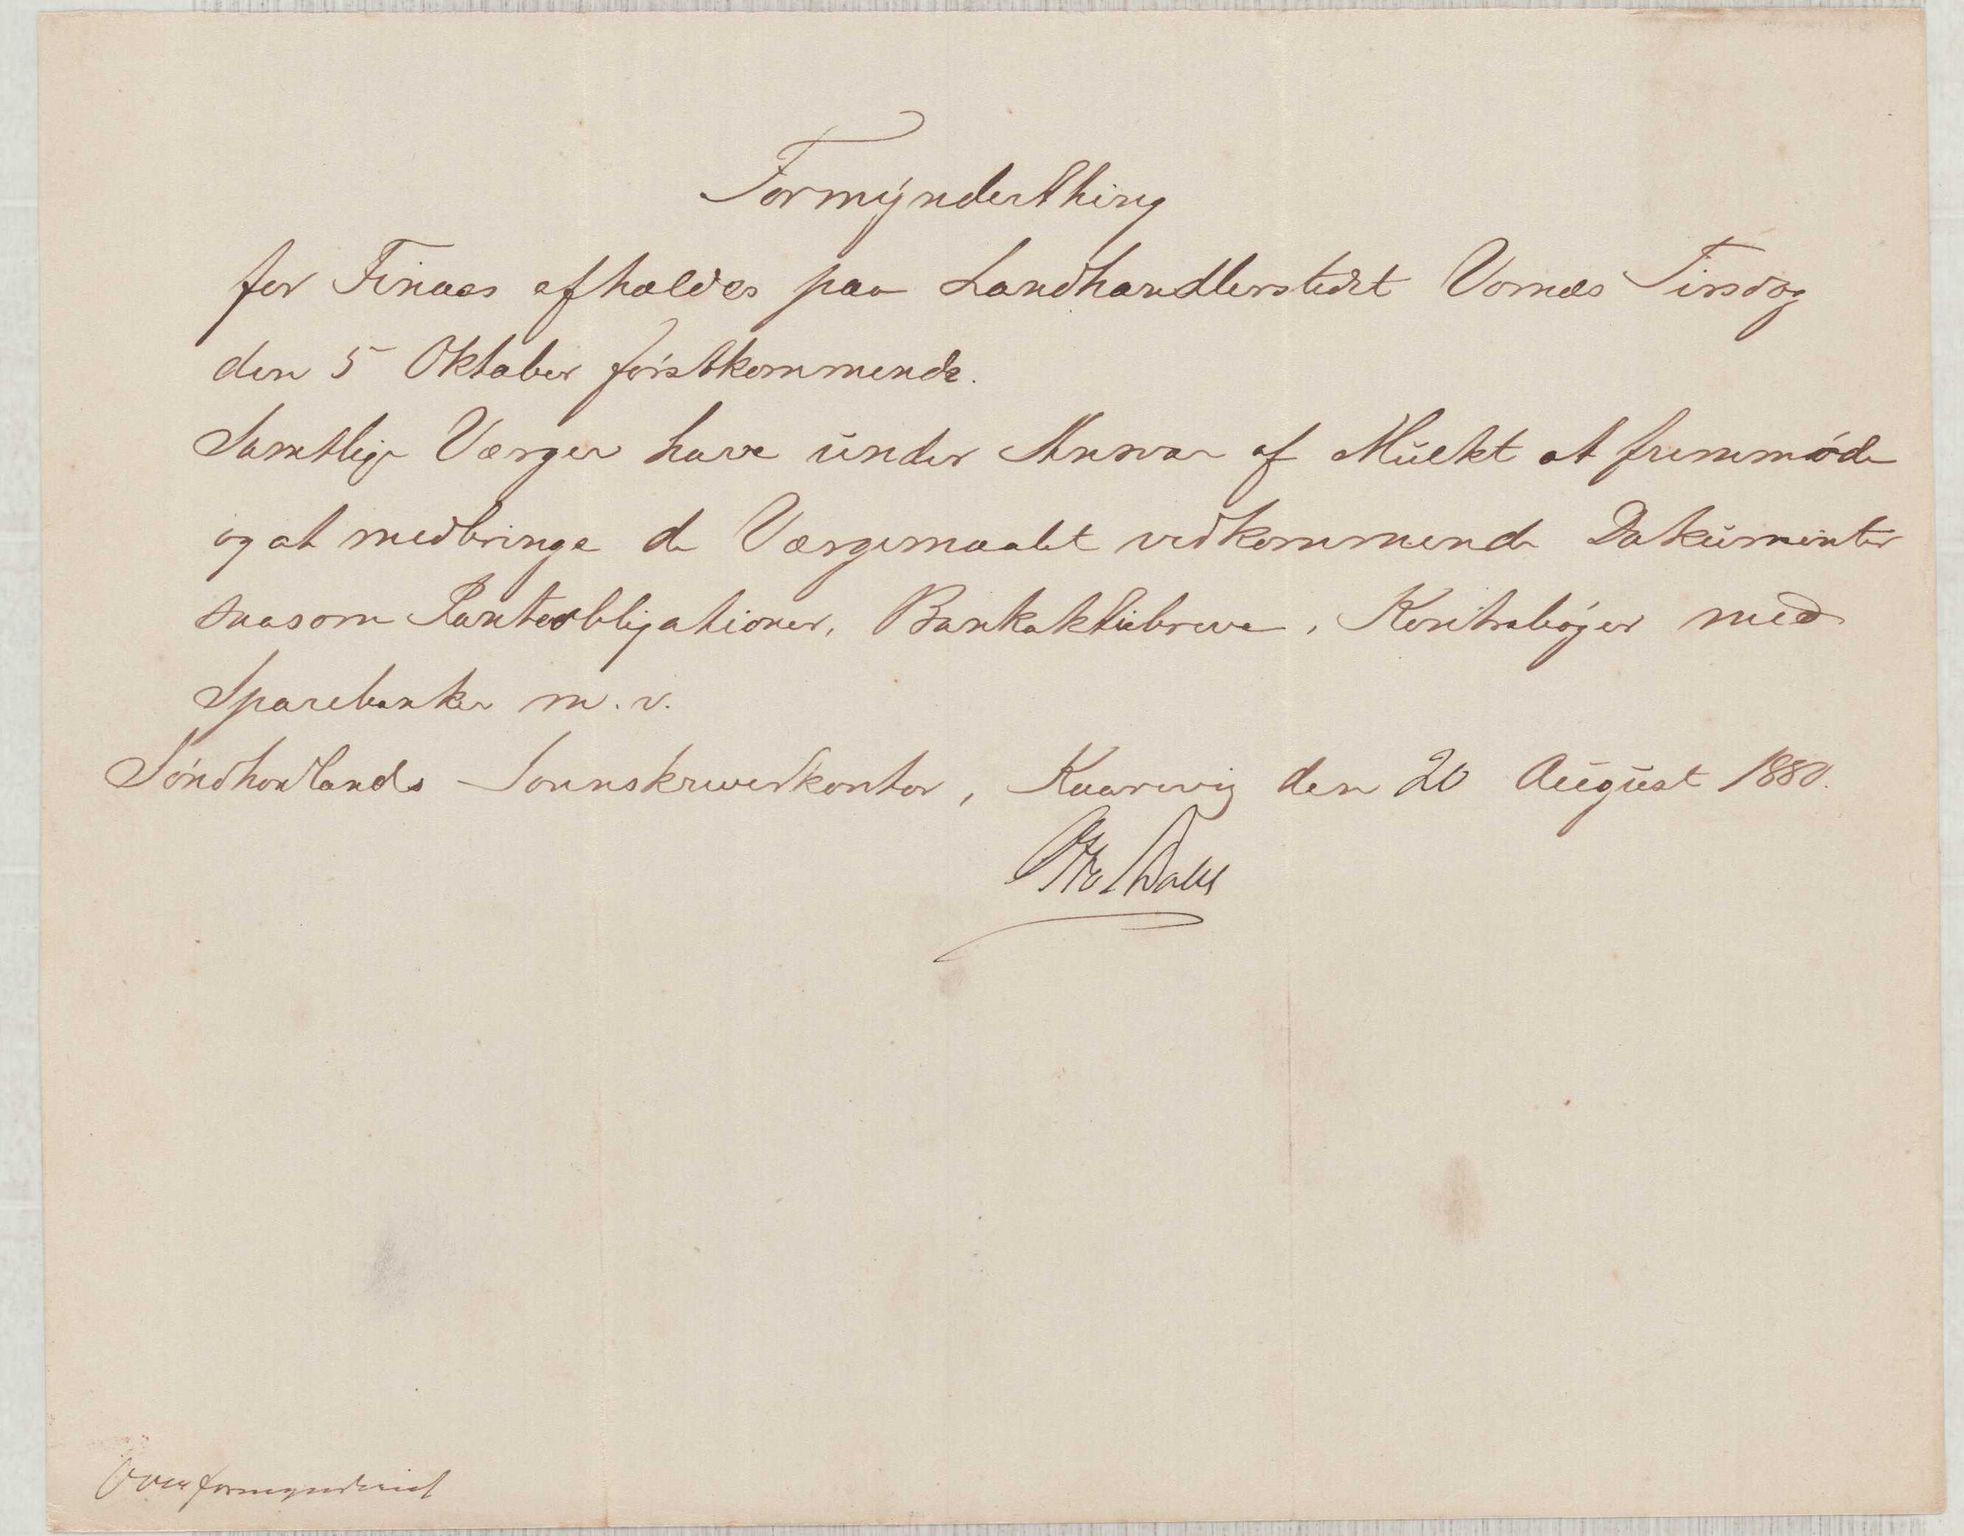 Formynderthing
for Finaas afholdes paa Landhandlerstedet Vornæs Tirsdag
den 5 Oktober førstkommende.
Samtlige Værger have under Ansvar af Mulkt at fremmøde
og at medbringe de Værgemaalet vedkommende Dokumenter
saasom Panteobligationer, Bankaktiebreve, Kontrabøger med
Sparebanker m. v.
Søndhordlands Sorenskriverkontor, Kaarevig den 20 August 1880.
Otto Dahl
Overformynderiet